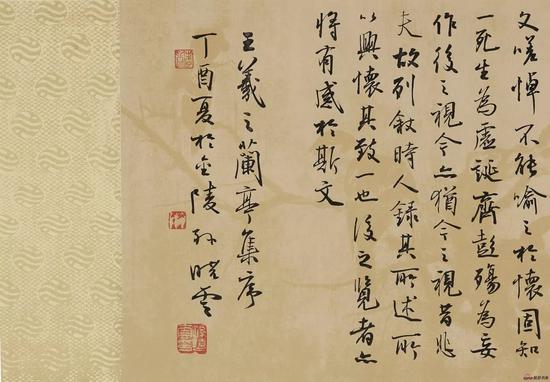 文嗟悼不能喻之於懷固知
一死生為虛誕齊彭殤為妄
作後之視今亦猶今之視昔悲
夫故列敘時人錄其所述所
以興懷其致一也後之覽者亦
將有感於斯文
王羲之蘭亭集序
丁酉夏於金陵孫曉雲